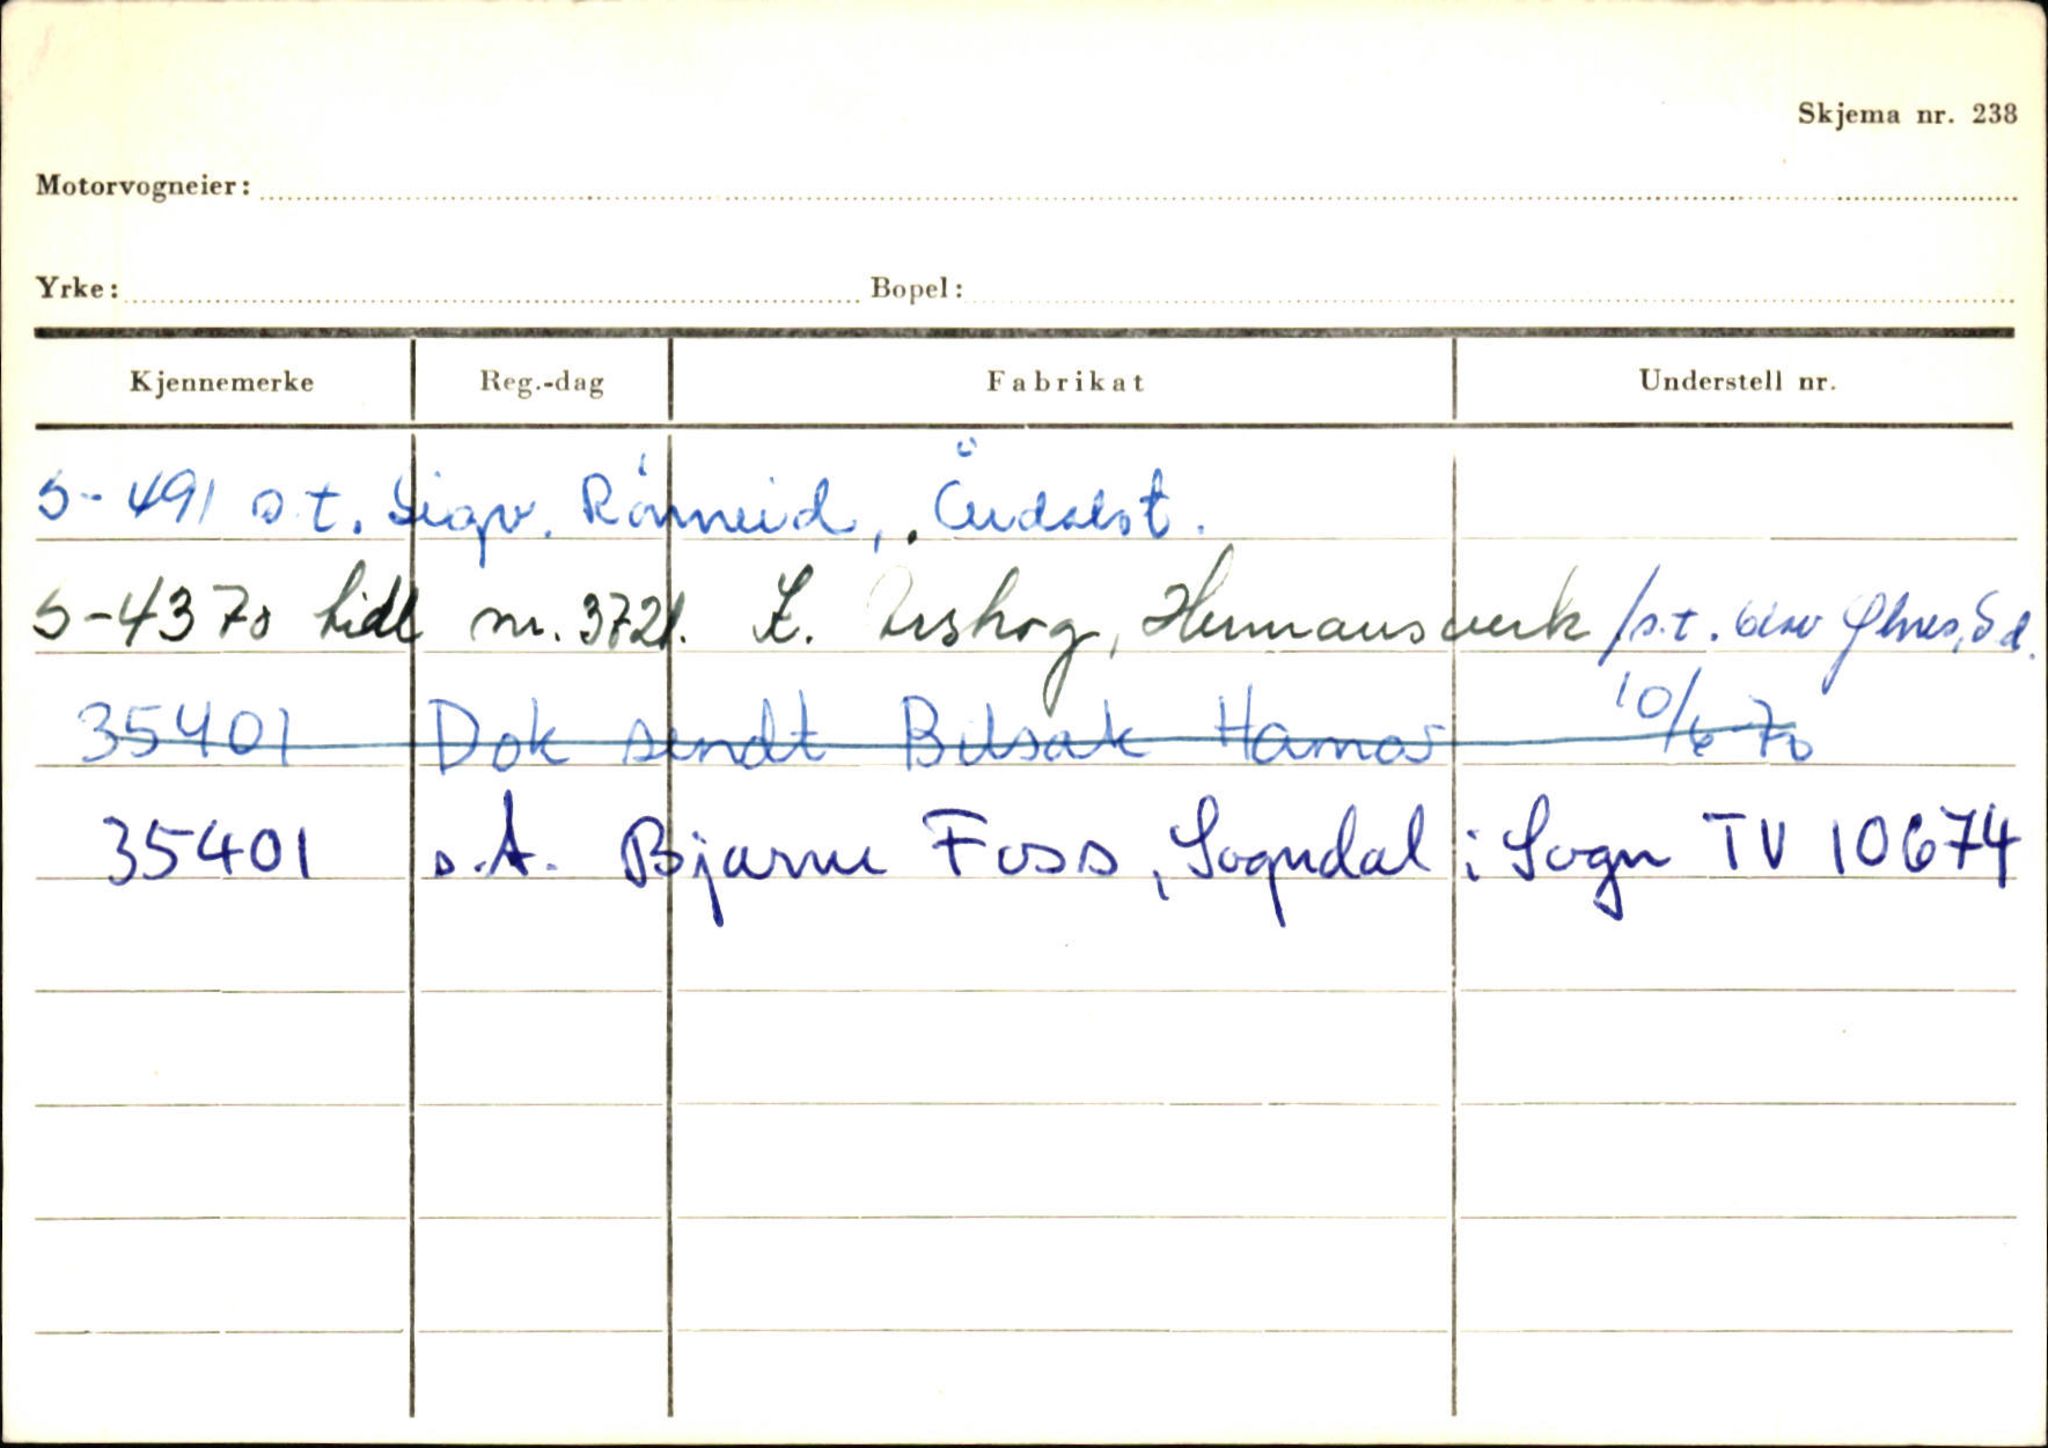 Skjema nr. 238
Motorvogneier:
Yrke: Bopel:
Kjennemerke Reg.-dag Fabrikat Understell nr.
S-491 s.t. Sigv. Rönneid,
S-4370 hidl nr. 3721. Hermansverk /s.t. Ølnes, Sd.
35401 Dok sendt Bilsak Hamar 10/6 70
35401 s.t. Bjarne Foss, Sogndal i Sogn TV 10674